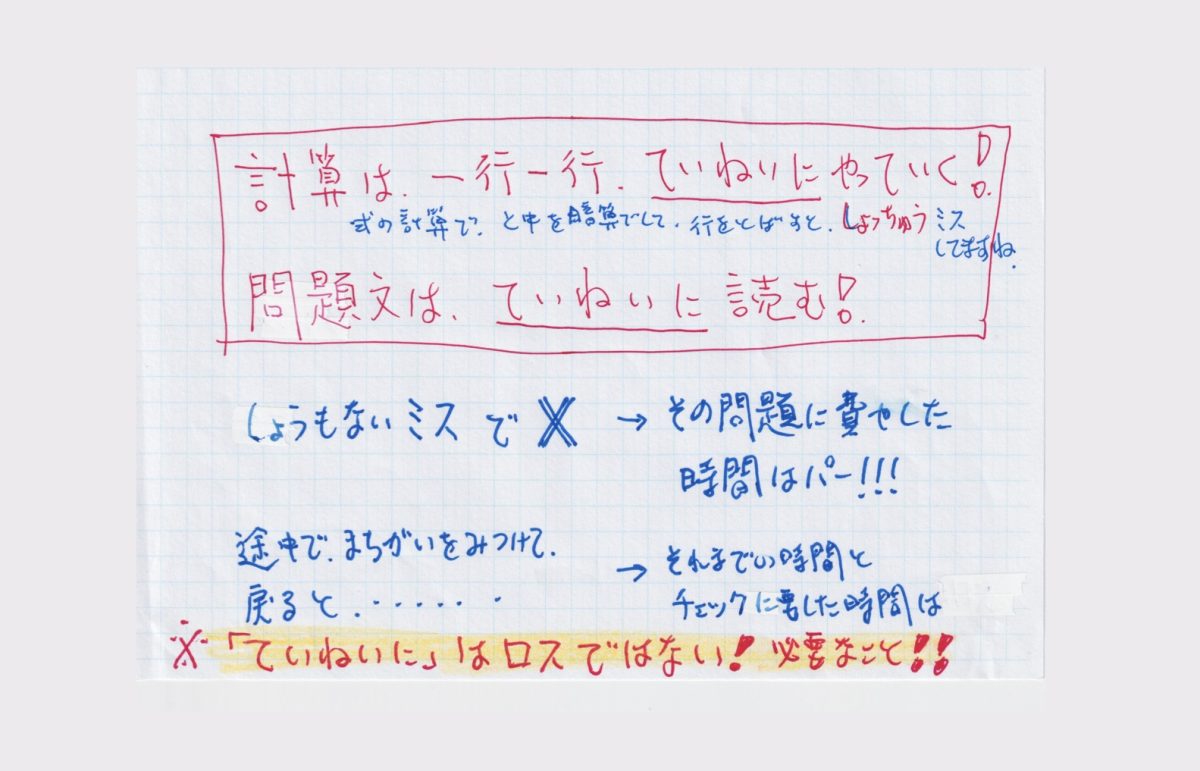 計算は、一行一行、ていねいにやっていく!
式の計算で、と中を暗算でして、行をとばすと、しょっちゅうミス
してますね。
問題文は、ていねいに読む!
しょうもないミスで X → その問題に費やした
時間はパー!!!
途中で、まちがいをみつけて、
戻ると、・・・・・・
→ それまでの時間と
チェックに要した時間は
※「ていねいに」はロスではない! 必要なこと!!